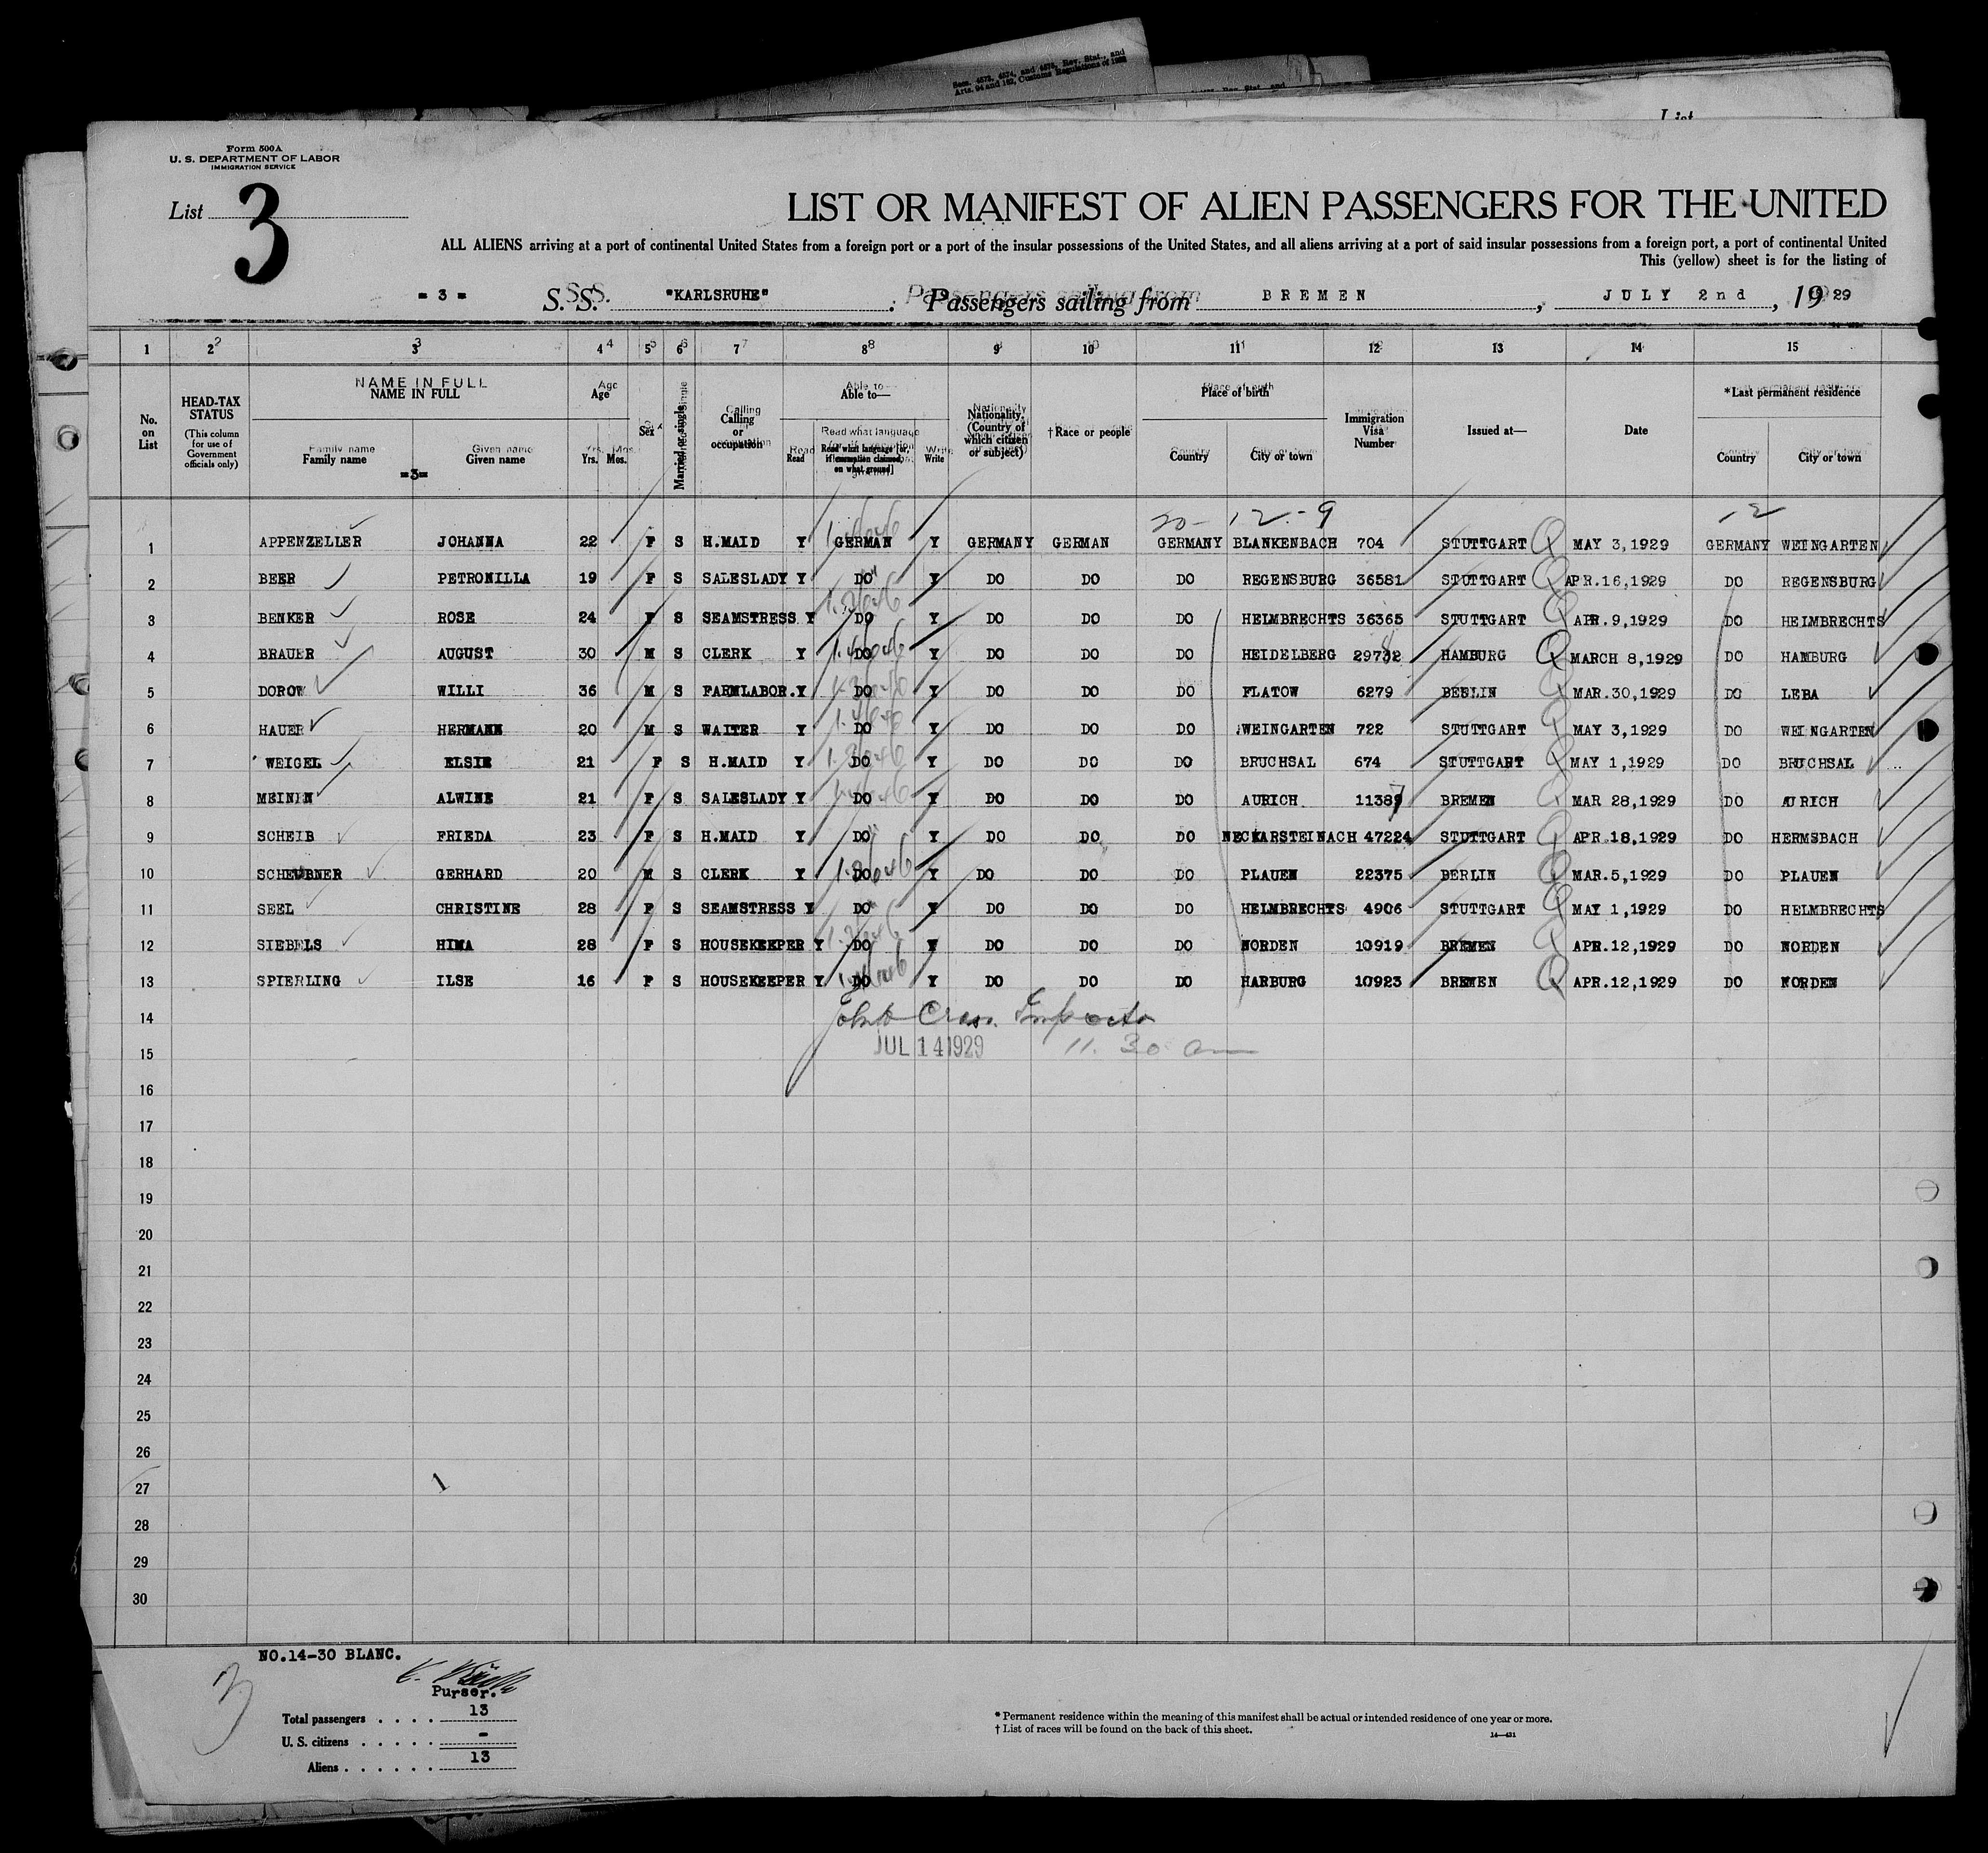 Secs. 4573, 4574, and 4575, Rev. Stat., and
Arts. 94 and 162, Customs Regulations of 1923
List
Form 500A
U. S. DEPARTMENT OF LABOR
IMMIGRATION SERVICE
List 3
LIST OR MANIFEST OF ALIEN PASSENGERS FOR THE UNITED
ALL ALIENS arriving at a port of continental United States from a foreign port or a port of the insular possessions of the United States, and all aliens arriving at a port of said insular possessions from a foreign port, a port of continental United
This (yellow) sheet is for the listing of
= 3 = S. S. "KARLSRUHE" Passengers sailing from BREMEN, JULY 2nd, 1929
1 2 3 4 5 6 7 8 9 10 11 12 13 14 15
No. on List
HEAD-TAX STATUS (This column for use of Government officials only)
NAME IN FULL
Family name Given name
=3=
Age
Yrs. Mos.
Sex
Married or single
Calling or occupation
Able to—
Read Read what language [or, if exemption claimed, on what ground] Write
Nationality. (Country of which citizen or subject)
†Race or people
Place of birth
Country City or town
Immigration Visa Number
Issued at—
Date
*Last permanent residence
Country City or town
20- 12.- 9 12
1 APPENZELLER JOHANNA 22 F S H.MAID Y GERMAN Y GERMANY GERMAN GERMANY BLANKENBACH 704 STUTTGART MAY 3,1929 GERMANY WEINGARTEN
2 BEER PETRONILLA 19 F S SALESLADY Y DO Y DO DO DO REGENSBURG 36581 STUTTGART APR.16,1929 DO REGENSBURG
3 BENKER ROSE 24 F S SEAMSTRESS Y DO Y DO DO DO HELMBRECHTS 36365 STUTTGART APR.9,1929 DO HELMBRECHTS
4 BRAUER AUGUST 30 M S CLERK Y DO Y DO DO DO HEIDELBERG 29732 HAMBURG MARCH 8,1929 DO HAMBURG
5 DOROW WILLI 36 M S FARMLABOR. Y DO Y DO DO DO FLATOW 6279 BERLIN MAR.30,1929 DO LEBA
6 HAUER HERMANN 20 M S WAITER Y DO Y DO DO DO WEINGARTEN 722 STUTTGART MAY 3,1929 DO WEINGARTEN
7 WEIGEL ELSIE 21 F S H.MAID Y DO Y DO DO DO BRUCHSAL 674 STUTTGART MAY 1,1929 DO BRUCHSAL
8 MEINEN ALWINE 21 F S SALESLADY Y DO Y DO DO DO AURICH 11387 BREMEN MAR 28,1929 DO AURICH
9 SCHEIB FRIEDA 23 F S H.MAID Y DO Y DO DO DO NECKARSTEINACH 47224 STUTTGART APR.18,1929 DO HERMSBACH
10 SCHEUBNER GERHARD 20 M S CLERK Y DO Y DO DO DO PLAUEN 22375 BERLIN MAR.5,1929 DO PLAUEN
11 SEEL CHRISTINE 28 F S SEAMSTRESS Y DO Y DO DO DO HELMBRECHTS 4906 STUTTGART MAY 1,1929 DO HELMBRECHTS
12 SIEBELS HIMA 28 F S HOUSEKEEPER Y DO Y DO DO DO NORDEN 10919 BREMEN APR.12,1929 DO NORDEN
13 SPIERLING ILSE 16 F S HOUSEKEEPER Y DO Y DO DO DO HARBURG 10923 BREMEN APR.12,1929 DO NORDEN
14
JUL 14 1929 11.30 am
15
16
17
18
19
20
21
22
23
24
25
26
27
28
29
30
NO.14-30 BLANC.
Purser.
3
Total passengers . . . . 13
U. S. citizens . . . . . -
Aliens . . . . . . 13
* Permanent residence within the meaning of this manifest shall be actual or intended residence of one year or more.
† List of races will be found on the back of this sheet.
14—431